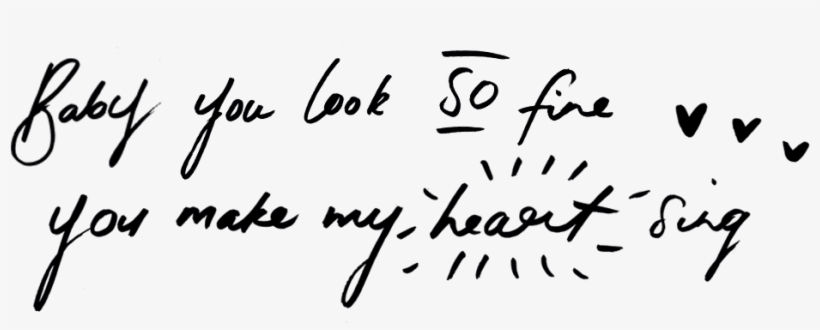 Baby you look so fine
you make my heart sing